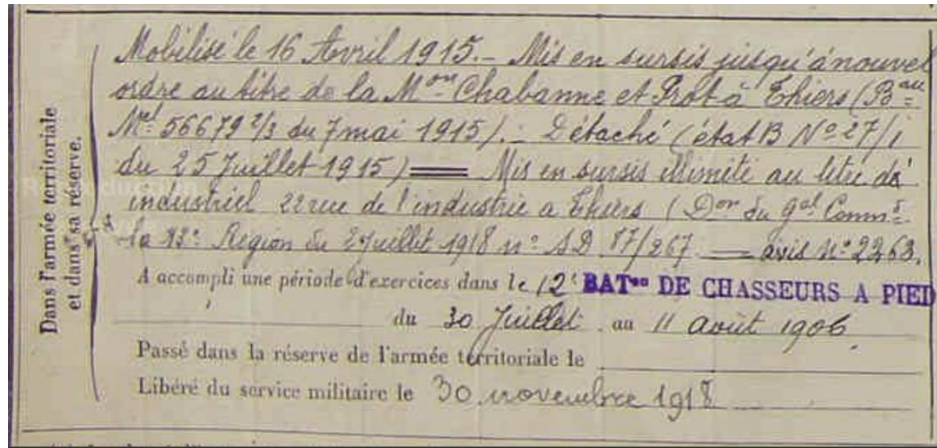 Mobilisé le 16 Avril 1915. – Mis en sursis jusqu'à nouvel
ordre au titre de la Mon Chabanne et Prot à Thiers (Bau
Mel 56679 2/3 du 7 mai 1915). – Détaché (état B No 27/i
du 25 Juillet 1915) = Mis en sursis illimité au titre de
industriel 22 rue de l'industrie a Thiers (Don du gal Commdt
la 13e Région du 2 Juillet 1918 no SD 87/267 — avis no 2263.
A accompli une période d'exercices dans le 12e BATon DE CHASSEURS A PIED
du 30 Juillet au 11 août 1906.
Passé dans la réserve de l'armée territoriale le
Libéré du service militaire le 30 novembre 1918
Dans l'armée territoriale
et dans sa réserve.